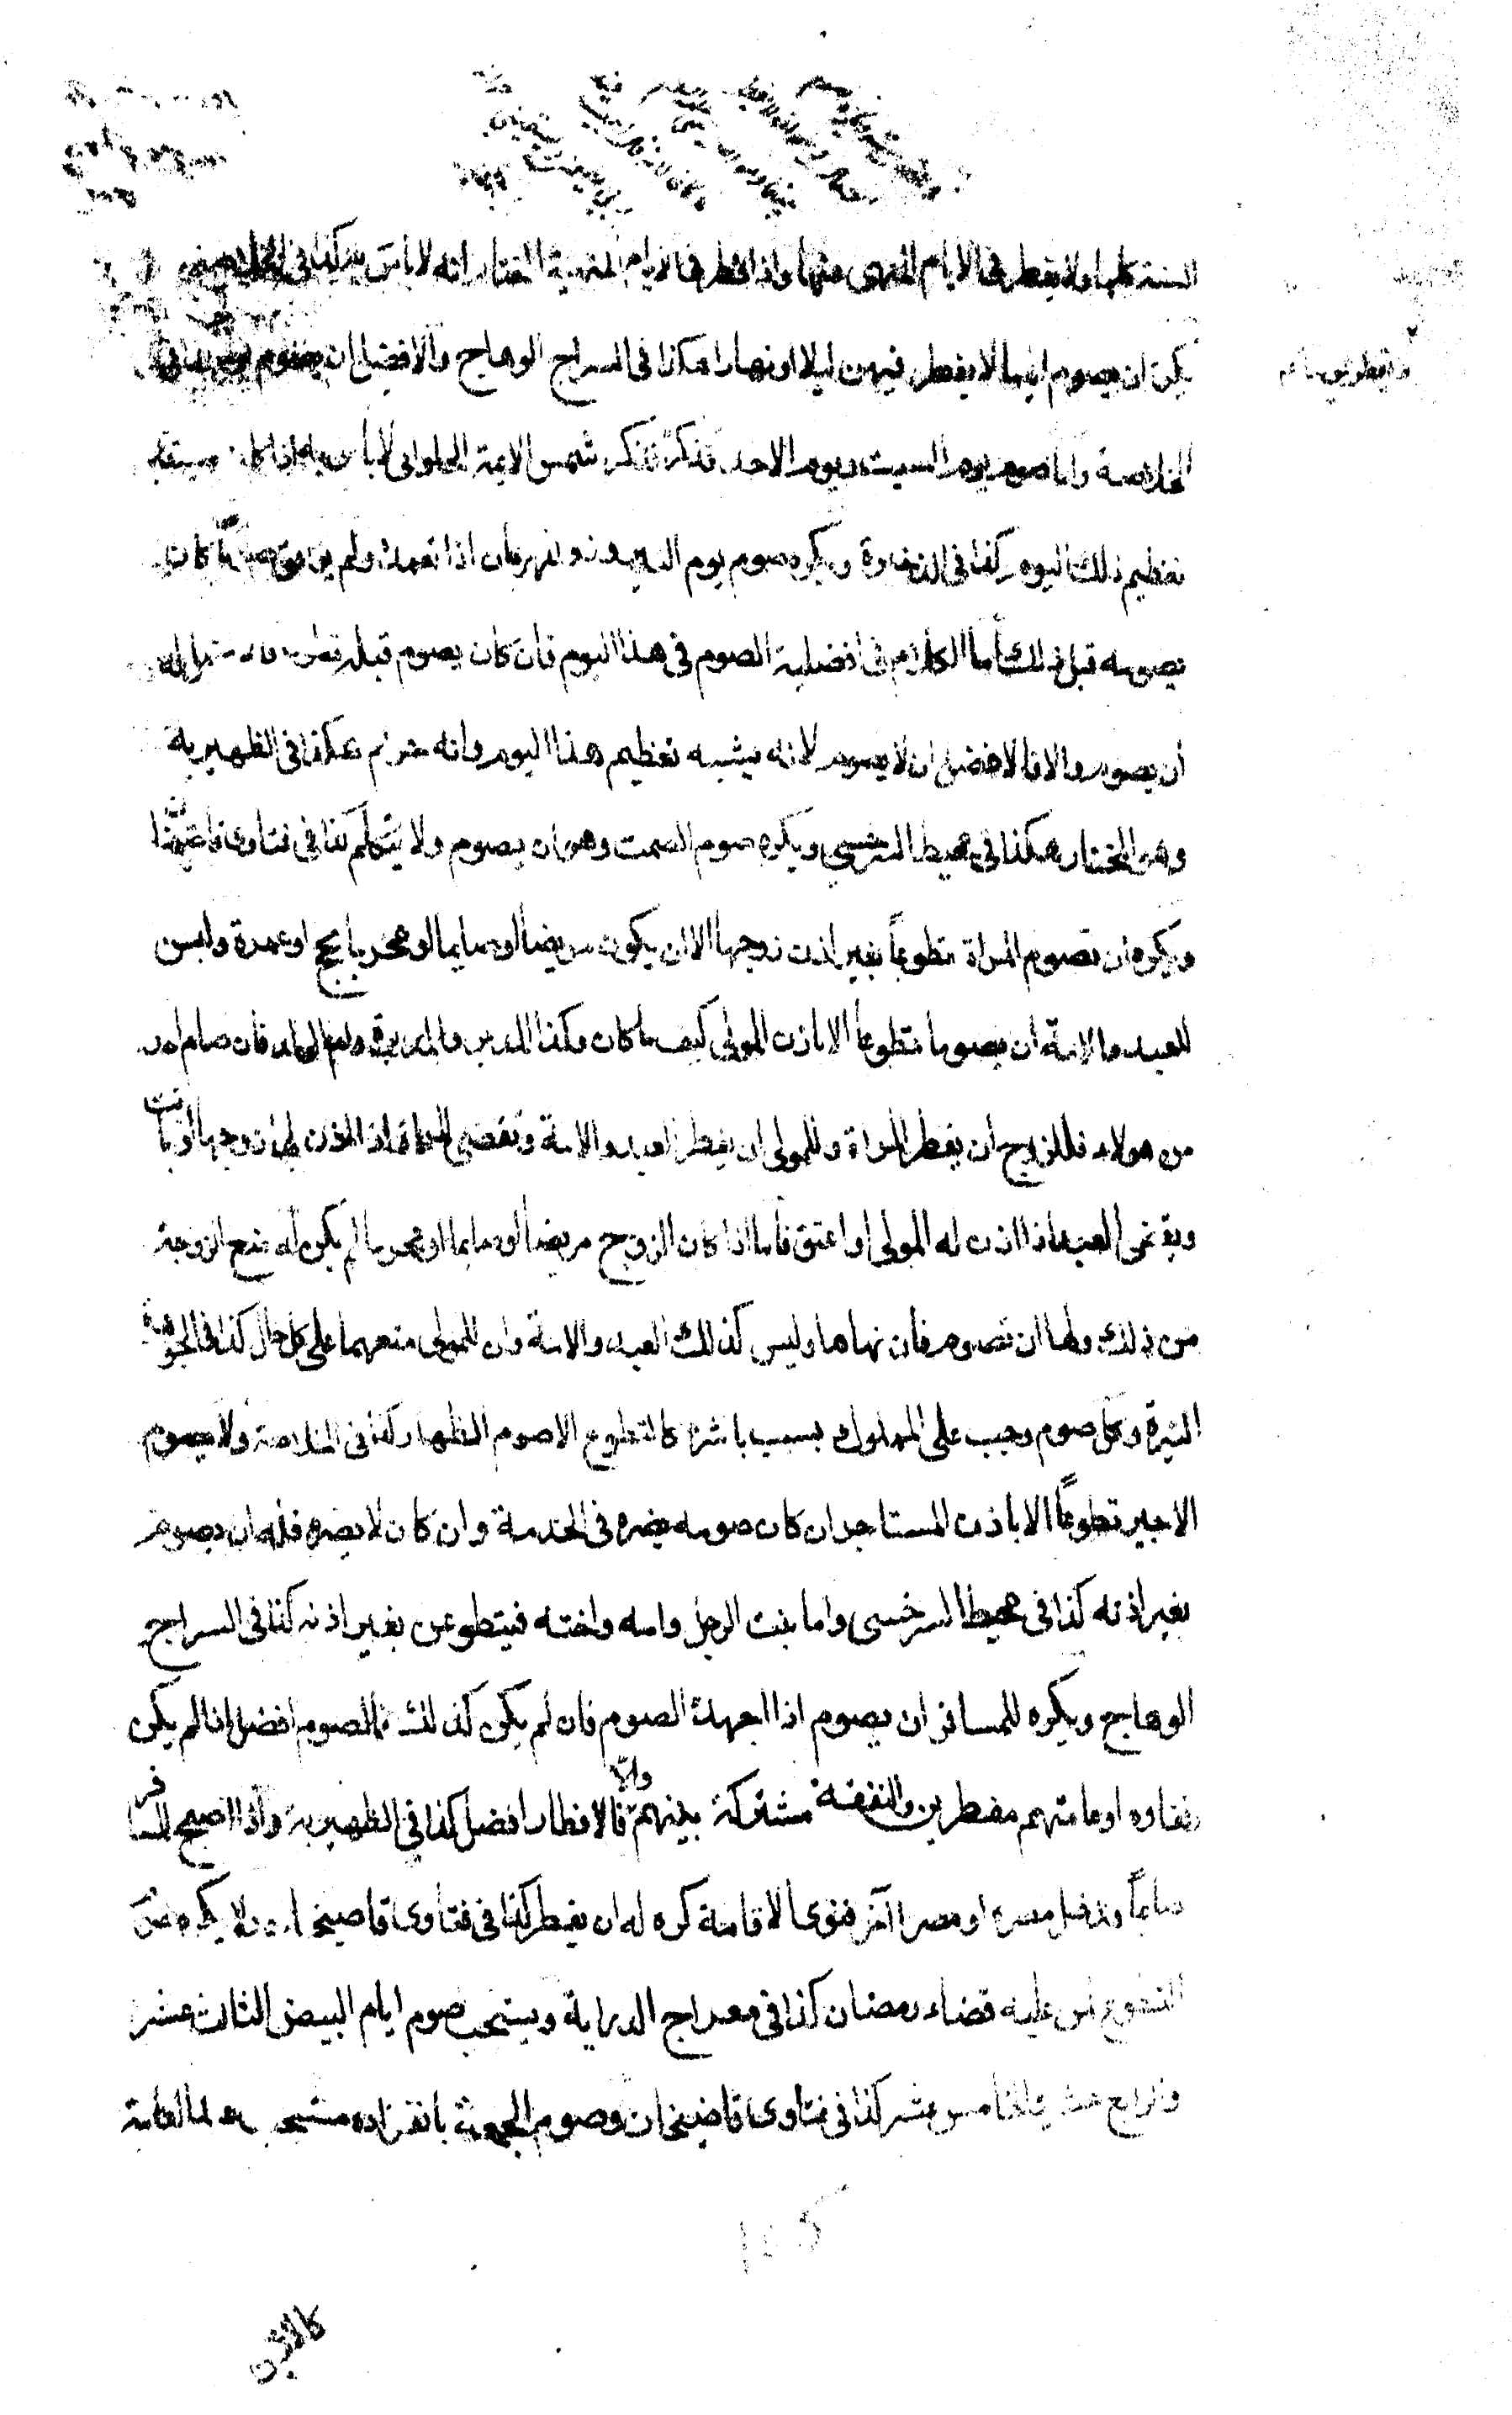 السنة كلها ولا يفطر في الايام المنهى عنها واذا افطر في الايام المنهية المختار انه لا باس به كذا في الخلاصة
يكره ان يصوم اياما لا يفطر فيهن ليلا او نهارا هكذا في السراج الوهاج والافضل ان يصوم
ويفطر يوما
الخلاصة واما صوم يوم السبت ويوم الاحد فذكر شمس الائمة الحلواني لا بأس به اذا كان
تعظيم ذلك اليوم كذا في الذخيرة ويكره صوم يوم النيروز والمهرجان اذا تعمده ولم يوافق صوما كان
يصومه قبل ذلك أما الكلام في افضلية الصوم في هذا اليوم فان كان يصوم قبله تطوعا
أن يصوم والا فالافضل ان لا يصوم لانه يشبه تعظيم هذا اليوم وانه حرام هكذا في الظهيرية
وهو المختار هكذا في محيط السرخسي ويكره صوم الصمت وهو ان يصوم ولا يتكلم كذا في فتاوى قاضيخان
ويكره ان تصوم المراة تطوعاً بغير اذن زوجها الا ان يكون مريضا او صايما او محرما بحج او عمرة وليس
للعبد والامة ان يصوما تطوعا الا باذن المولى كيف ما كان وكذا المدبر والمدبرة وام الولد فان صام احد
من هولاء فللزوج ان يفطر المراة وللمولى ان يفطر العبد والامة وتقضي المراة اذا اذن لها زوجها او بانت
ويقضى العبد اذا اذن له المولى او اعتق فأما اذا كان الزوج مريضا او صايما او محرما لم يكن له منع الزوجة
من ذلك ولها ان تصوم فان نهاها وليس كذلك العبد والامة وان للمولى منعهما على كل حال كذا في الجوهرة
النيرة وكل صوم وجب على المملوك بسبب باشره كالتطوع الا صوم الظهار كذا في الخلاصة ولا يصوم
الاجير تطوعاً الا باذن المستاجر ان كان صومه يضره في الخدمة وان كان لا يضره فله ان يصوم
بغير اذنه كذا في محيط السرخسي واما بنت الرجل وامه واخته فيتطوعن بغير اذنه كذا في السراج
الوهاج ويكره للمسافر ان يصوم اذا اجهده الصوم فان لم يكن كذلك فالصوم افضل اذا لم يكن
رفقاوه او عامتهم مفطرين والنفقة مشتركة بينهم والا فالافطار افضل كذا في الظهيرية واذا اصبح المسافر
صايماً ودخل مصره او مصرا آخر فنوى الاقامة كره له ان يفطر كذا في فتاوى قاضيخان ولا يكره صوم
التطوع لمن عليه قضاء رمضان كذا في معراج الدراية ويستحب صوم ايام البيض الثالث عشر
والرابع عشر والخامس عشر كذا في فتاوى قاضيخان وصوم الجمعة بانفراده مستحب عند العامة
كالاثنين